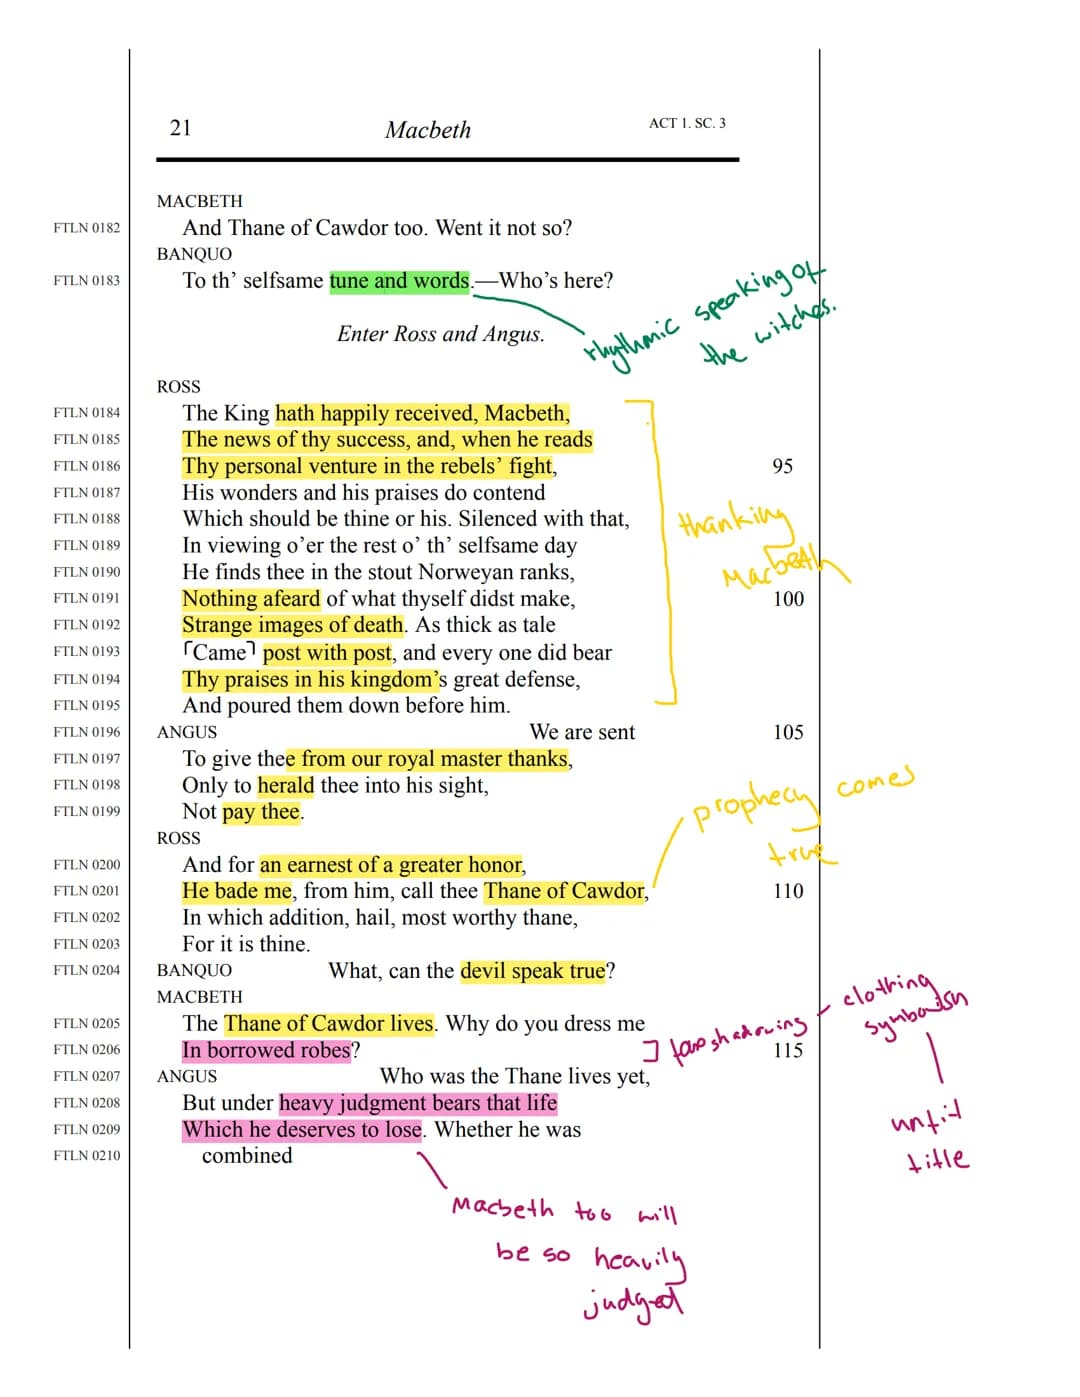 21 Macbeth ACT 1. SC. 3
MACBETH
FTLN 0182 And Thane of Cawdor too. Went it not so?
BANQUO
FTLN 0183 To th' selfsame tune and words.—Who's here?
rhythmic speaking of
the witches.
Enter Ross and Angus.
ROSS
FTLN 0184 The King hath happily received, Macbeth,
FTLN 0185 The news of thy success, and, when he reads
FTLN 0186 Thy personal venture in the rebels' fight, 95
FTLN 0187 His wonders and his praises do contend
FTLN 0188 Which should be thine or his. Silenced with that,
FTLN 0189 In viewing o'er the rest o' th' selfsame day
FTLN 0190 He finds thee in the stout Norweyan ranks,
FTLN 0191 Nothing afeard of what thyself didst make, 100
FTLN 0192 Strange images of death. As thick as tale
FTLN 0193 ⌜Came⌝ post with post, and every one did bear
FTLN 0194 Thy praises in his kingdom's great defense,
FTLN 0195 And poured them down before him.
thanking
Macbeth
FTLN 0196 ANGUS We are sent 105
FTLN 0197 To give thee from our royal master thanks,
FTLN 0198 Only to herald thee into his sight,
FTLN 0199 Not pay thee.
ROSS
FTLN 0200 And for an earnest of a greater honor,
FTLN 0201 He bade me, from him, call thee Thane of Cawdor, 110
prophecy comes
true
FTLN 0202 In which addition, hail, most worthy thane,
FTLN 0203 For it is thine.
FTLN 0204 BANQUO What, can the devil speak true?
MACBETH
FTLN 0205 The Thane of Cawdor lives. Why do you dress me
FTLN 0206 In borrowed robes? 115
foreshadowing - clothing
symbolism
unfit
title
FTLN 0207 ANGUS Who was the Thane lives yet,
FTLN 0208 But under heavy judgment bears that life
FTLN 0209 Which he deserves to lose. Whether he was
FTLN 0210 combined
Macbeth too will
be so heavily
judged